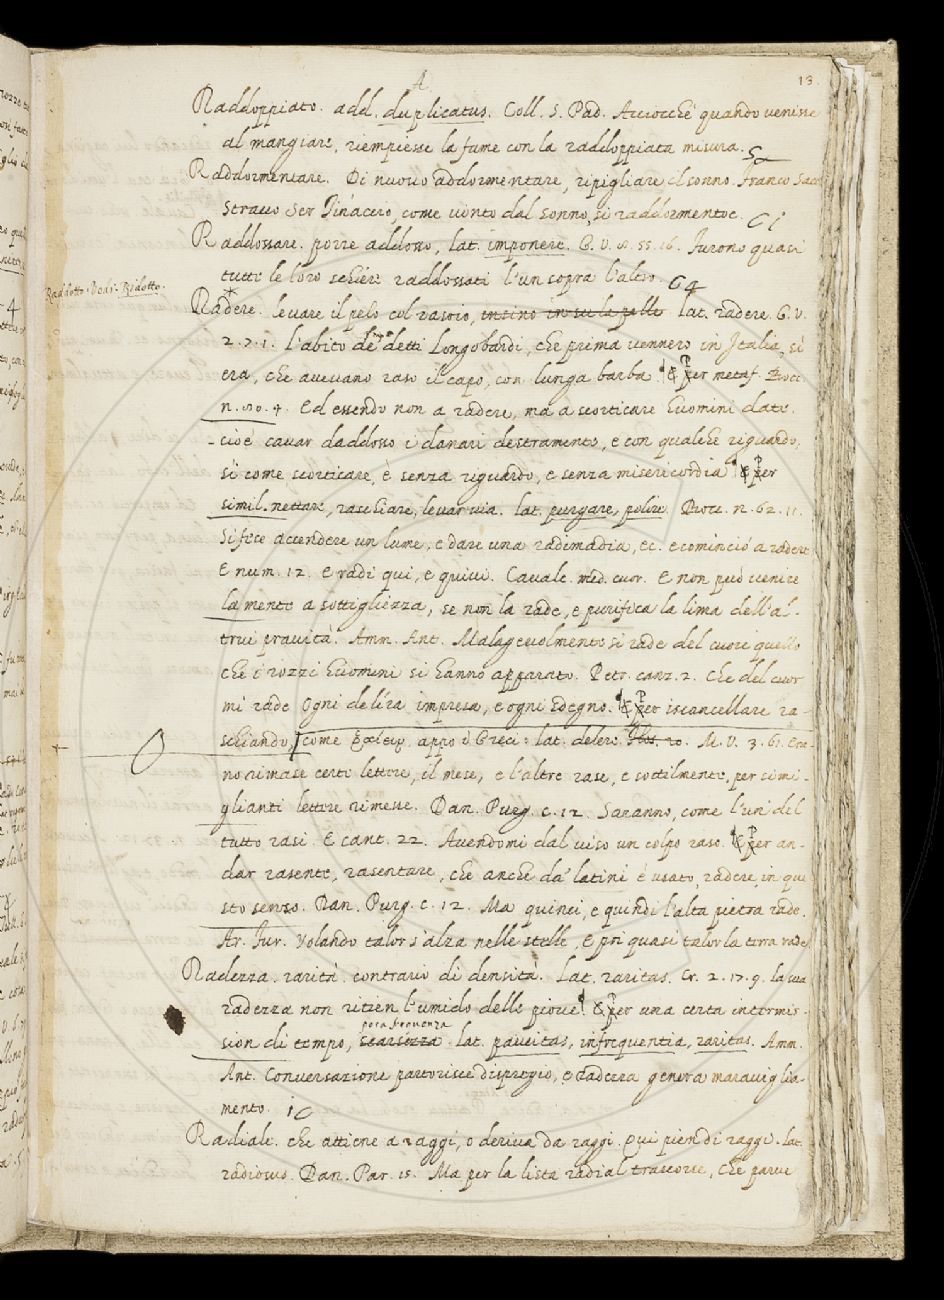 A
13.
Raddoppiato. add. duplicatus. Coll. S. Pad. Acciocchè quando venisse
al mangiare, riempiesse la fame con la raddoppiata misura.
Raddormentare. Di nuovo addormentare, ripigliare il sonno. Franco Sacc.
stracco Ser Tinaccio, come vinto dal sonno, si raddormentoe.
Raddossare. porre addosso, lat. imponere. G. V. 8. 55. 16. Furono quasi
tutte le loro schiere raddossati l'un sopra l'altro.
Raddotto. Vedi. Ridotto.
Radere. levare il pelo col rasoio, insino in su la pelle. lat. radere. G. V.
2. 7. 1. l'abito de' detti Longobardi, che prima vennero in Italia, si
era, che avevano raso il capo, con lunga barba. & Per metaf. Bocc.
n. 80. 4. Ed essendo non a radere, ma a scorticare huomini date.
-cioè cavar daddosso i danari destramente, e con qualche riguardo,
sì come scorticare, è senza riguardo, e senza misericordia & Per
simil. nettare, raschiare, levar via. lat. purgare, polire. Bocc. n. 62. 11.
Si fece accendere un lume, e dare una radimadia, ec. e cominciò a radere
E num. 12. E radi qui, e quivi. Cavalc. med. cuor. E non può venire
la mente a sottigliezza, se non la rade, e purifica la lima dell'al-
trui pravità. Amm. Ant. Malagevolmente si rade del cuore quello
che i rozzi huomini si hanno apparato. Petr. canz. 2. Che del cuor
mi rade Ogni delira impresa, e ogni sdegno. & Per iscancellare ra-
schiando, come appo i Greci: lat. delere. M. V. 3. 61. Era-
no rimase certe lettere, il mese, e l'altre rase, e sottilmente, per simi-
glianti lettere rimesse. Dan. Purg. c. 12. Saranno, come l'un del
tutto rasi. E cant. 22. Avendomi dal viso un colpo raso. & Per an-
dar rasente, rasentare, che anche da' latini è usato, radere, in que
sto senso. Dan. Purg. c. 12. Ma quinci, e quindi l'alta pietra rade.
Ar. Fur. Volando talor s'alza nelle stelle, E poi quasi talor la terra rade.
Radezza. rarità contrario di densità. Lat. raritas. Cr. 2. 17. 9. la sua
radezza non ritien l'umido delle piove. & Per una certa intermis-
poca frequenza
sion di tempo, scarsezza. lat. paucitas, infrequentia, raritas. Amm.
Ant. Conversazione partorisce dispregio, e radezza genera maraviglia-
mento.
Radiale. che attiene a raggi, o deriva da raggi. Qui pien di raggi. lat.
radiosus. Dan. Par. 15. Ma per la lista radial trascorse, Che parve